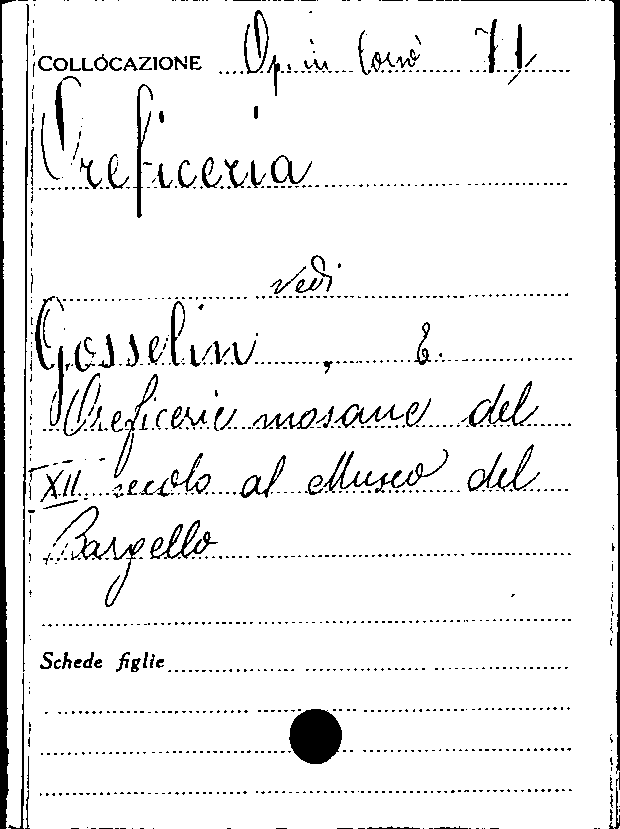 COLLOCAZIONE Op. in Corso 71
Oreficeria
vedi
Gosselin, E.
Oreficerie mosane del
XII secolo al Museo del
Bargello
Schede figlie